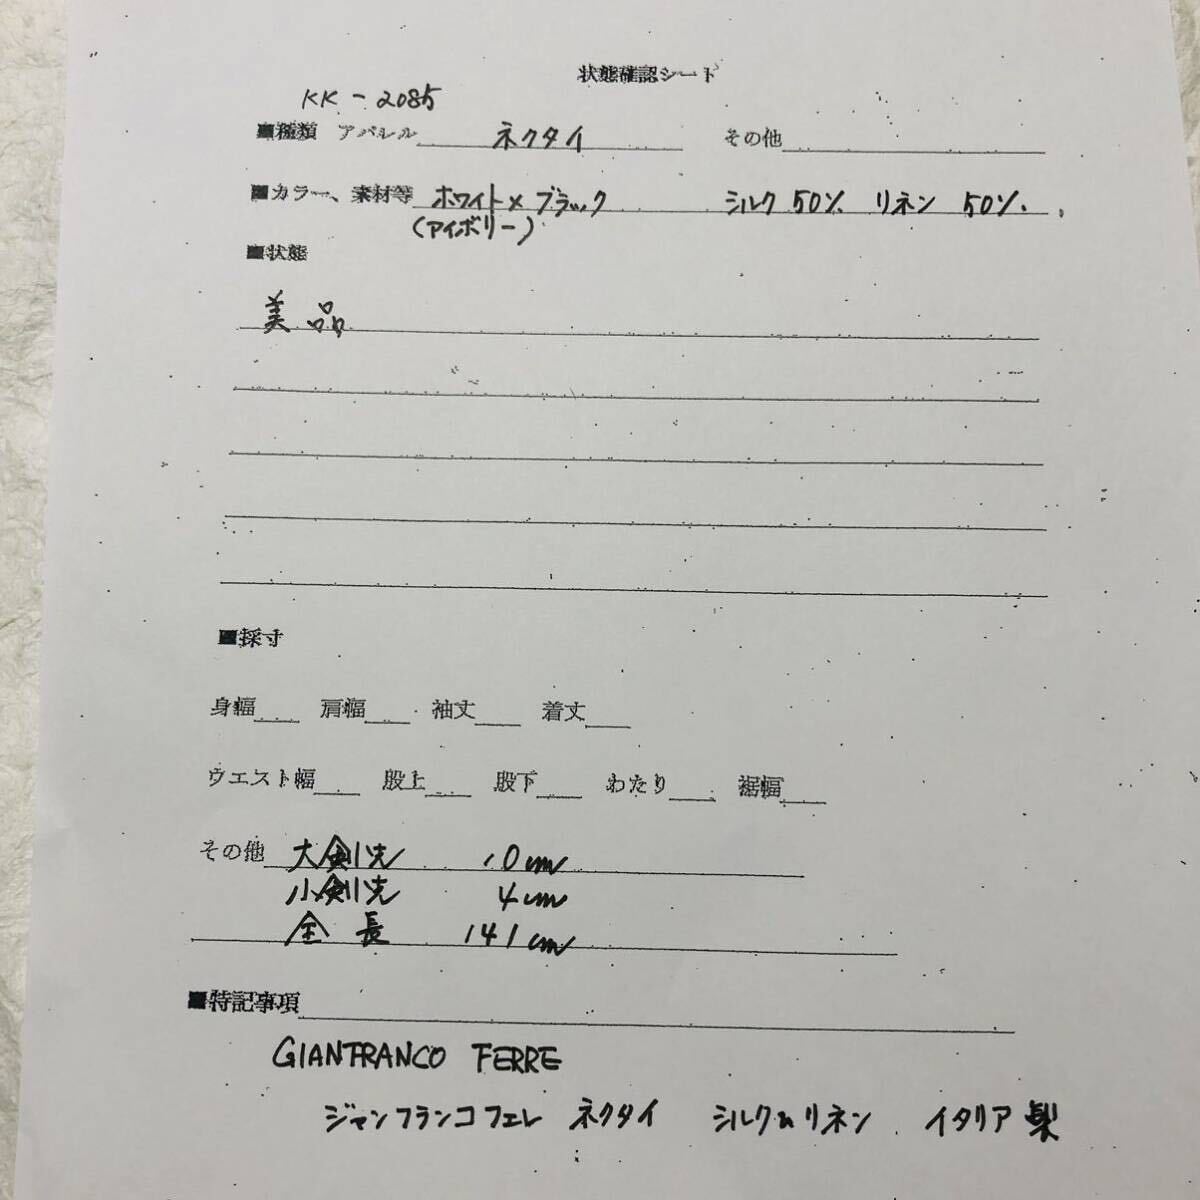 状態確認シート
KK-2085
■種類 アパレル ネクタイ その他
■カラー、素材等 ホワイト×ブラック シルク50% リネン50%
(アイボリー)
■状態
美品
■採寸
身幅 肩幅 袖丈 着丈
ウエスト幅 股上 股下 わたり 裾幅
その他 大剣先 10cm
小剣先 4cm
全長 141cm
■特記事項
GIANFRANCO FERRE
ジャンフランコフェレ ネクタイ シルク リネン イタリア製